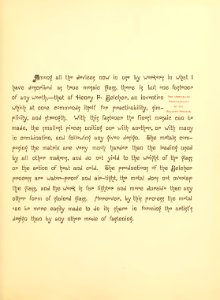 Among all the devices now in use by workers in what I
have described as true mosaic glass, there is but one fastener
of any worth,—that of Henry F. Belcher, an invention
which at once commends itself for practicability, sim-
plicity, and strength. With this fastener the finest mosaic can be
made, the smallest pieces uniting one with another, or with many
in combination, and following any given design. The metals com-
posing the matrix are very much harder than the leading used
by all other makers, and do not yield to the weight of the glass
or the action of heat and cold. The productions of the Belcher
process are water-proof and air-tight, the metal does not overlap
the glass, and the work is far lighter and more durable than any
other form of glazed glass. Moreover, by this process the metal
can be more easily made to do its share in forming the artist's
design than by any other mode of fastening.